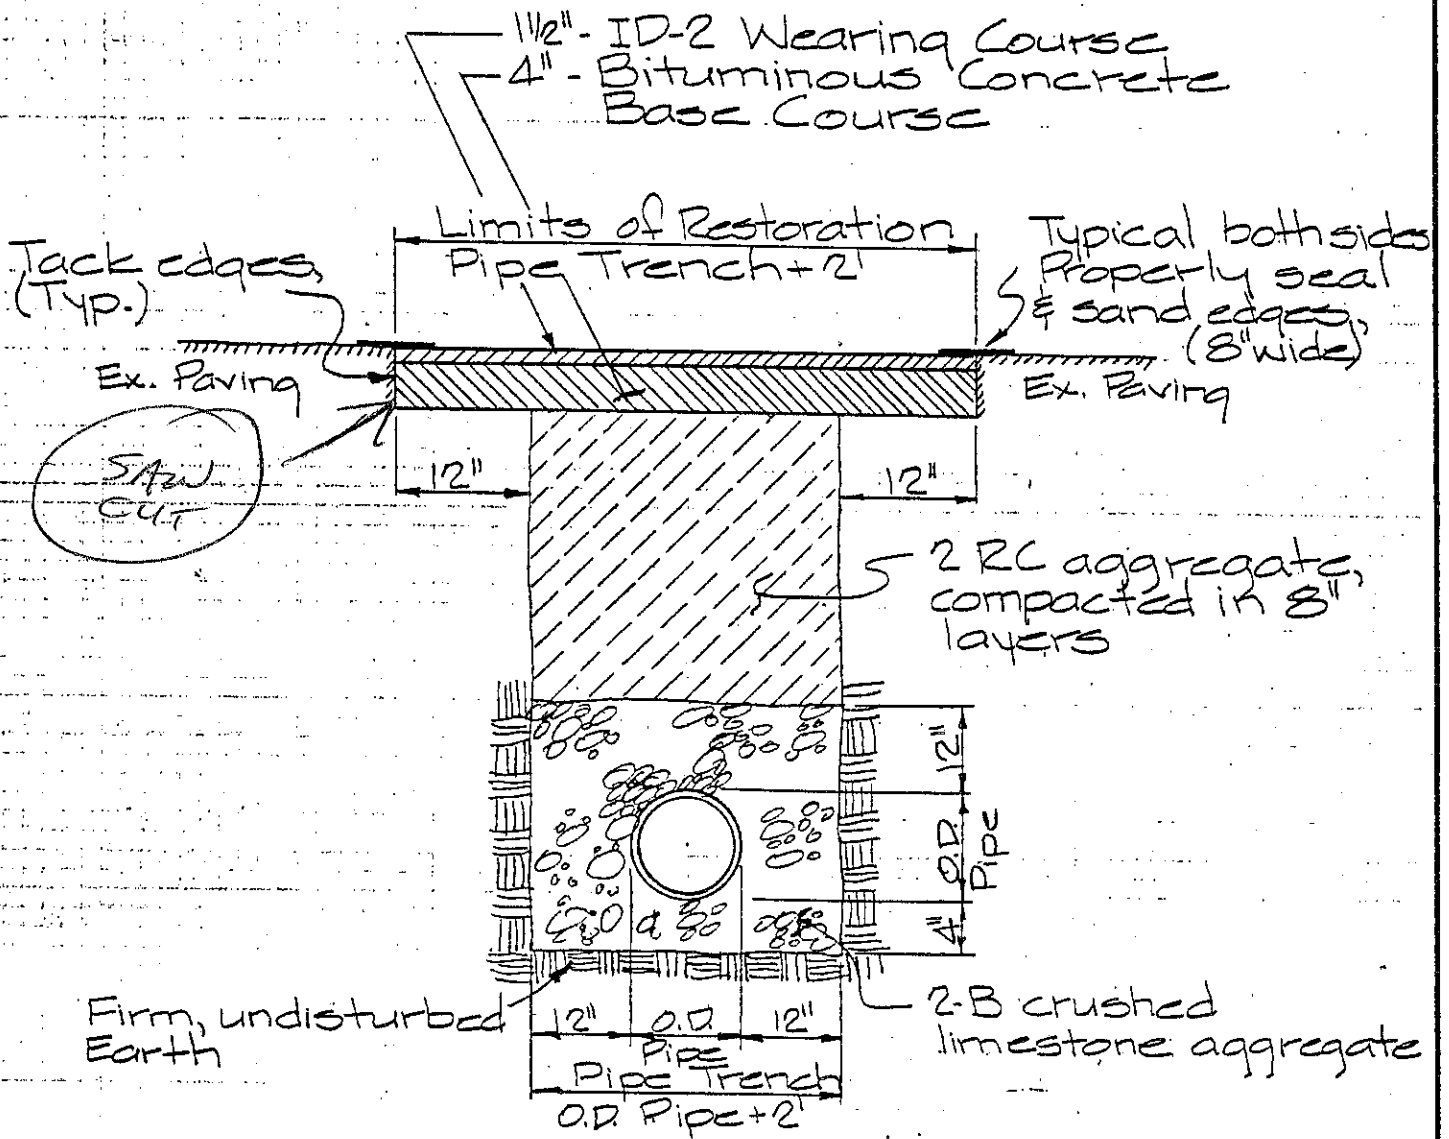 1 1/2" - ID-2 Wearing Course
4" - Bituminous Concrete
Base Course
Limits of Restoration
Pipe Trench + 2'
Tack edges,
(Typ.)
Typical both sides
Properly seal
& sand edges,
(8" wide)
Ex. Paving
Ex. Paving
SAW
CUT
12"
12"
2 RC aggregate,
compacted in 8"
layers
12"
O.D.
Pipe
4"
Firm, undisturbed
Earth
12"
O.D.
Pipe
12"
Pipe Trench
O.D. Pipe + 2'
2-B crushed
limestone aggregate